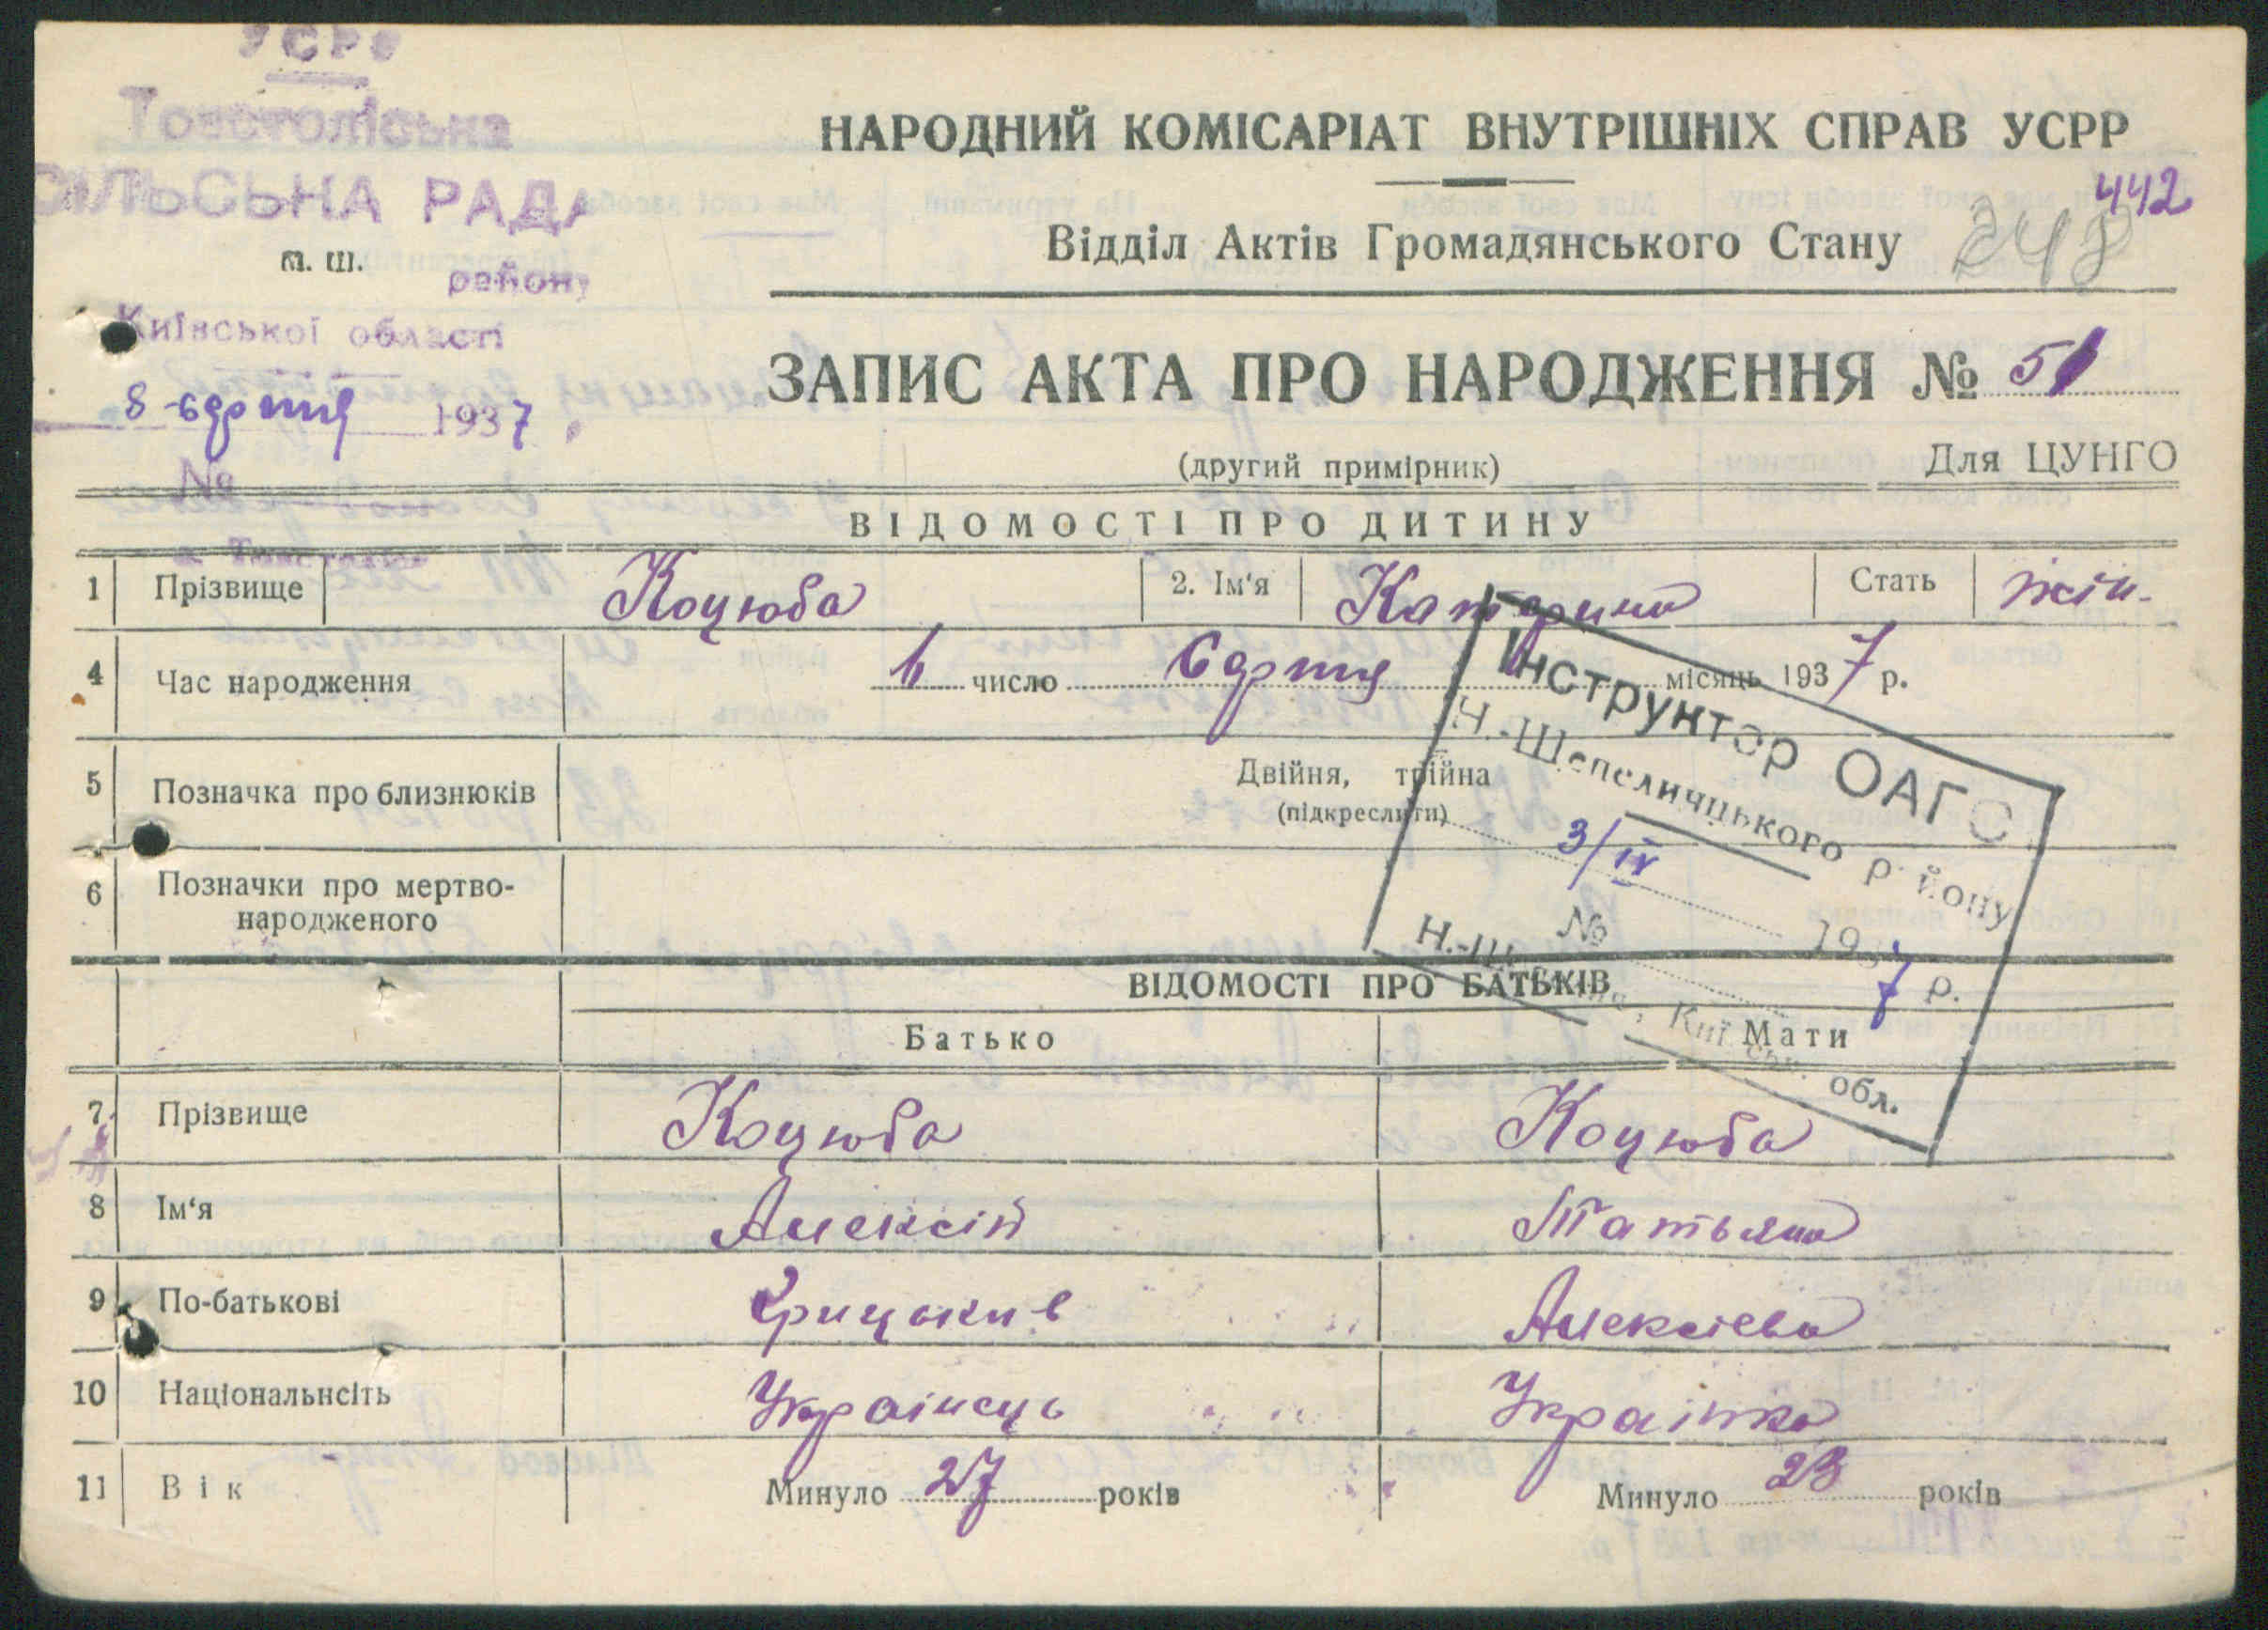 УСРР
Товстоліська
СІЛЬСЬКА РАДА
п. ш.
району
Київської області
8 серпня 1937
№
НАРОДНИЙ КОМІСАРІАТ ВНУТРІШНІХ СПРАВ УСРР
442
Відділ Актів Громадянського Стану
248
ЗАПИС АКТА ПРО НАРОДЖЕННЯ № 51
(другий примірник) Для ЦУНГО
ВІДОМОСТІ ПРО ДИТИНУ
1 Прізвище Коцюба 2. Ім'я Катерина Стать жін.
4 Час народження 6 число Серпня місяць 1937 р.
5 Позначка про близнюків Двійня, трійна
(підкреслити)
6 Позначки про мертво-
народженого
Інструктор ОАГС
Н.-Шепеличцького району
3/IV
№ 1937 р.
Київськ. обл.
ВІДОМОСТІ ПРО БАТЬКІВ
Батько Мати
7 Прізвище Коцюба Коцюба
8 Ім'я Алексій Татьяна
9 По-батькові Грицькив Алексієва
10 Національнсіть Украінець Украінка
11 Вік Минуло 27 років Минуло 23 років